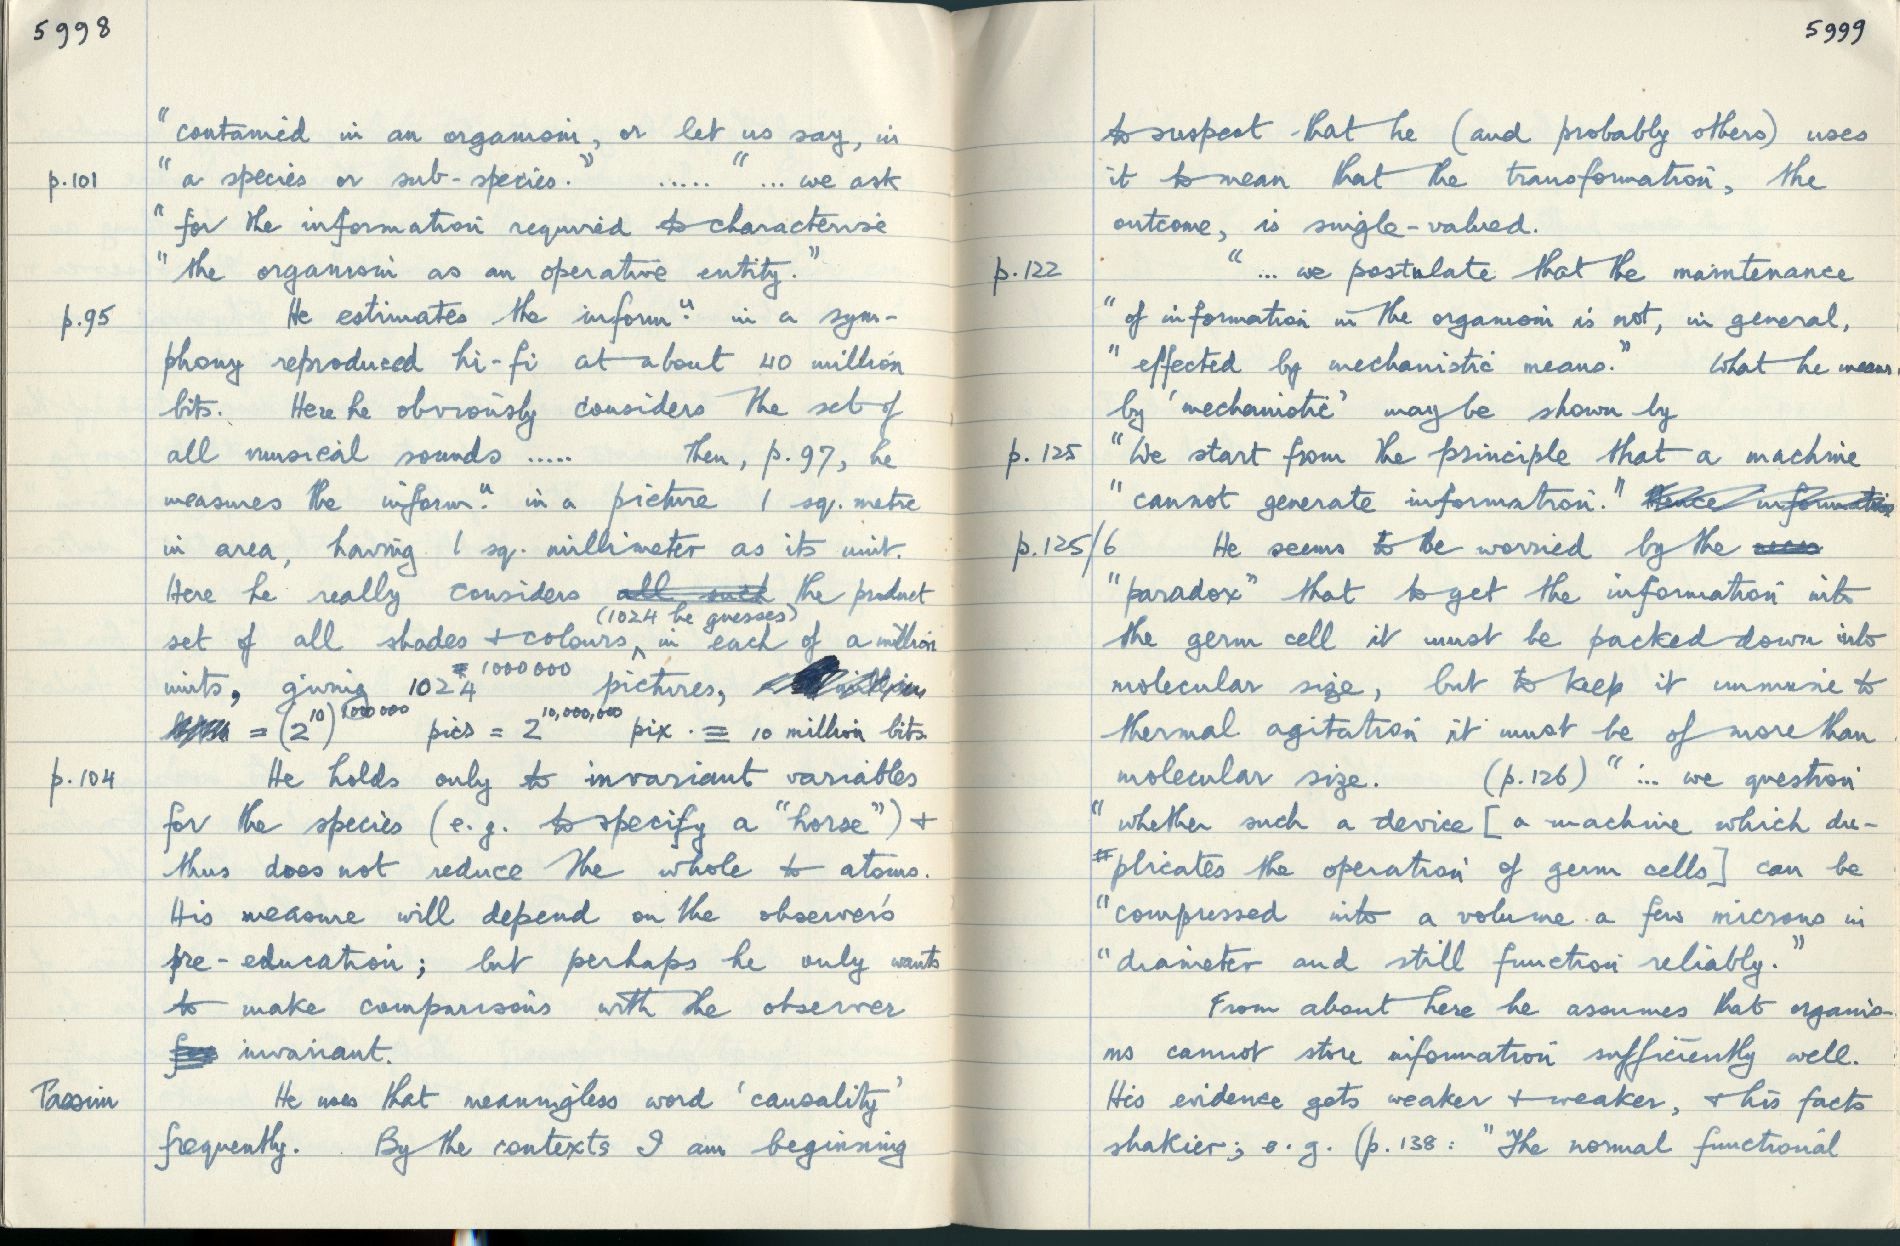 5998
"contained in an organism, or let us say, in
p.101 "a species or sub-species." ..... "... we ask
"for the information required to characterise
"the organism as an operative entity."
p.95 He estimates the inform.n in a sym-
phony reproduced hi-fi at about 40 million
bits. Here he obviously considers the set of
all musical sounds ..... Then, p.97, he
measures the inform.n in a picture 1 sq. metre
in area, having 1 sq. millimeter as its unit.
Here he really considers all such the product
(1024 he guesses)
set of all shades + colours ^ in each of a million
units, giving 1024^1000000 pictures, million
bits = (2^10)^1000000 pics = 2^10,000,000 pix. ≡ 10 million bits.
p.104 He holds only to invariant variables
for the species (e.g. to specify a "horse") +
thus does not reduce the whole to atoms.
His measure will depend on the observer's
pre-education; but perhaps he only wants
to make comparisons with the observer
invariant.
Passim He uses that meaningless word 'causality'
frequently. By the contexts I am beginning
5999
to suspect that he (and probably others) uses
it to mean that the transformation, the
outcome, is single-valued.
p.122 "... we postulate that the maintenance
"of information in the organism is not, in general,
"effected by mechanistic means." What he means
by 'mechanistic' may be shown by
p.125 "We start from the principle that a machine
"cannot generate information." Hence information
p.125/6 He seems to be worried by the
"paradox" that to get the information into
the germ cell it must be packed down into
molecular size, but to keep it immune to
thermal agitation it must be of more than
molecular size. (p.126) "... we question
"whether such a device [a machine which du-
"plicates the operation of germ cells] can be
"compressed into a volume a few microns in
"diameter and still function reliably."
From about here he assumes that organis-
ms cannot store information sufficiently well.
His evidence gets weaker + weaker, + his facts
shakier; e.g. (p.138: "The normal functional